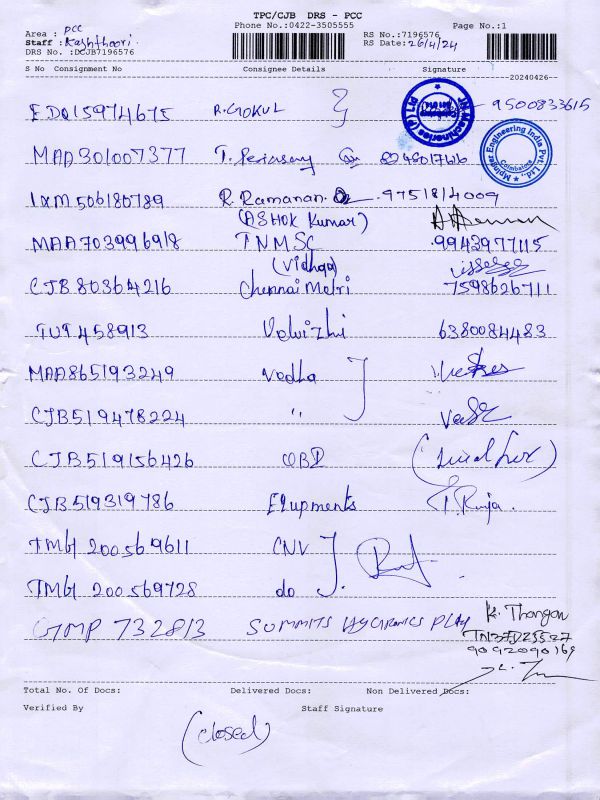 TPC/CJB DRS - PCC
Phone No.:0422-3505555
Page No.:1
Area : PCC
RS No.:7196576
Staff : Kashthoori.
RS Date: 26/4/24
DRS No. :DCJB7196576
S No Consignment No Consignee Details Signature
--20240426--
EDQ15974675 R.GOKUL 9500833615
MAA301007377
IXM506180789 R. Ramanan. 9751814009
(ASHOK Kumar)
MAA703996918 TNMSC .9943977115
(Vidhya)
CJB80364216 Chennai Metri 7598626711
458913 Velvizhi 6380084483
MAA865193249 Vedha
CJB519478224 "
CJB519156426 OBD
CJB519319786 Equpments T. Raja.
TMG 200569611 CNV
TMG 200569728 do
GMP 732813 SUMMITS HYCTRONICS PLAY K. Thangan
9092090169
Total No. Of Docs: Delivered Docs: Non Delivered Docs:
Verified By Staff Signature
(closed)
Mpinger Engineering India Pvt. Ltd.
Coimbatore